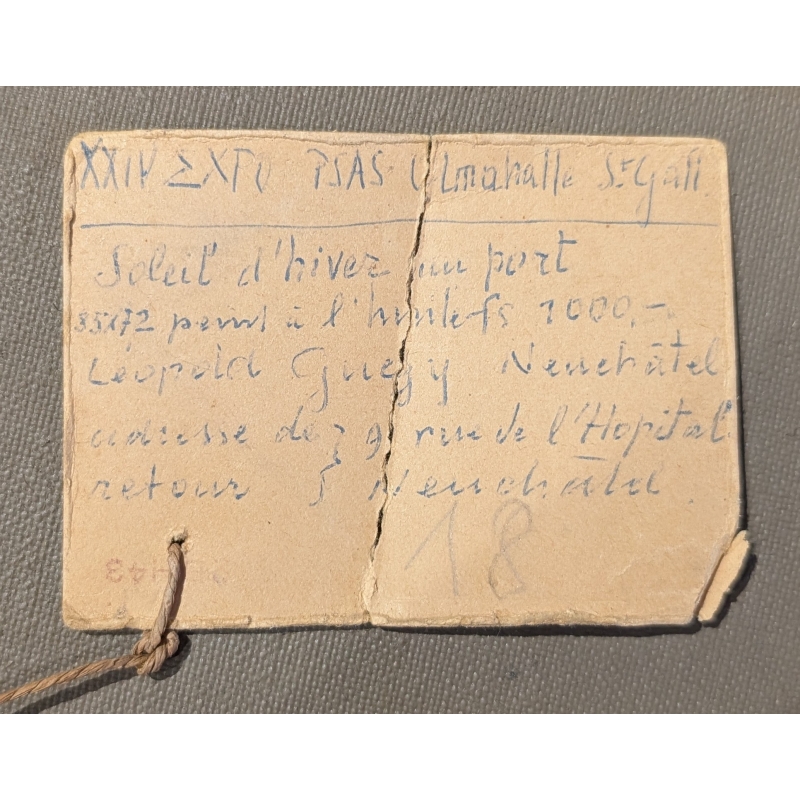 XXIV EXPO PSAS Ulmahalle St Gall
Soleil d'hiver au port
85x72 peint à l'huile fs 1000,-
Léopold Gugy Neuchâtel
adresse de } 9 rue de l'Hopital
retour } Neuchâtel
18